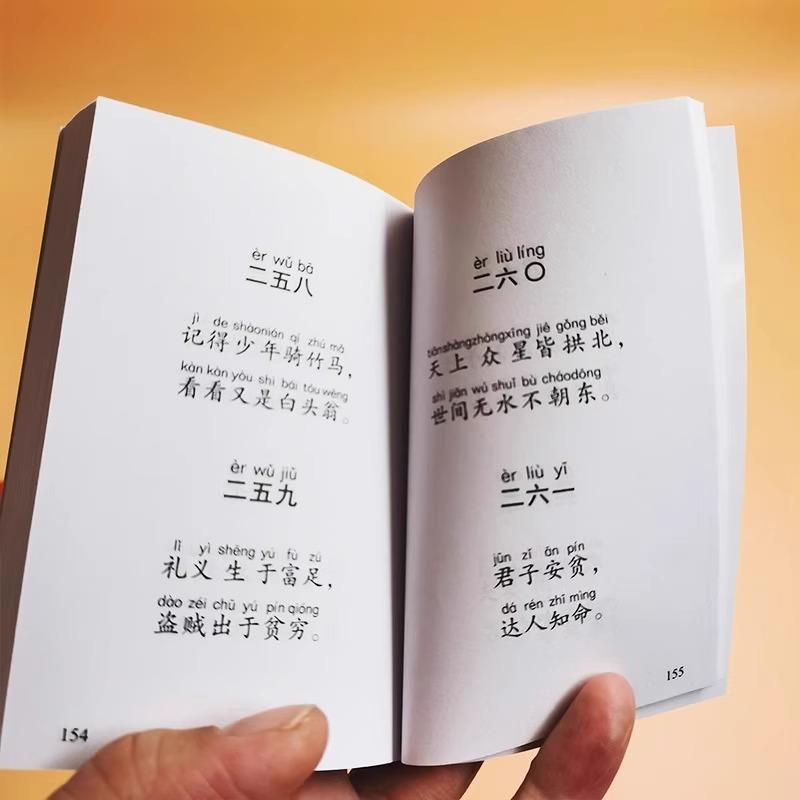 èr wǔ bā
二五八
jì de shàonián qí zhú mǎ
记得少年骑竹马，
kàn kàn yòu shì bái tóu wēng
看看又是白头翁。
èr wǔ jiǔ
二五九
lǐ yì shēng yú fù zú
礼义生于富足，
dào zéi chū yú pín qióng
盗贼出于贫穷。
154
èr liù líng
二六〇
tiānshàngzhòngxīng jiē gǒng běi
天上众星皆拱北，
shì jiān wú shuǐ bù cháodōng
世间无水不朝东。
èr liù yī
二六一
jūn zǐ ān pín
君子安贫，
dá rén zhī mìng
达人知命。
155